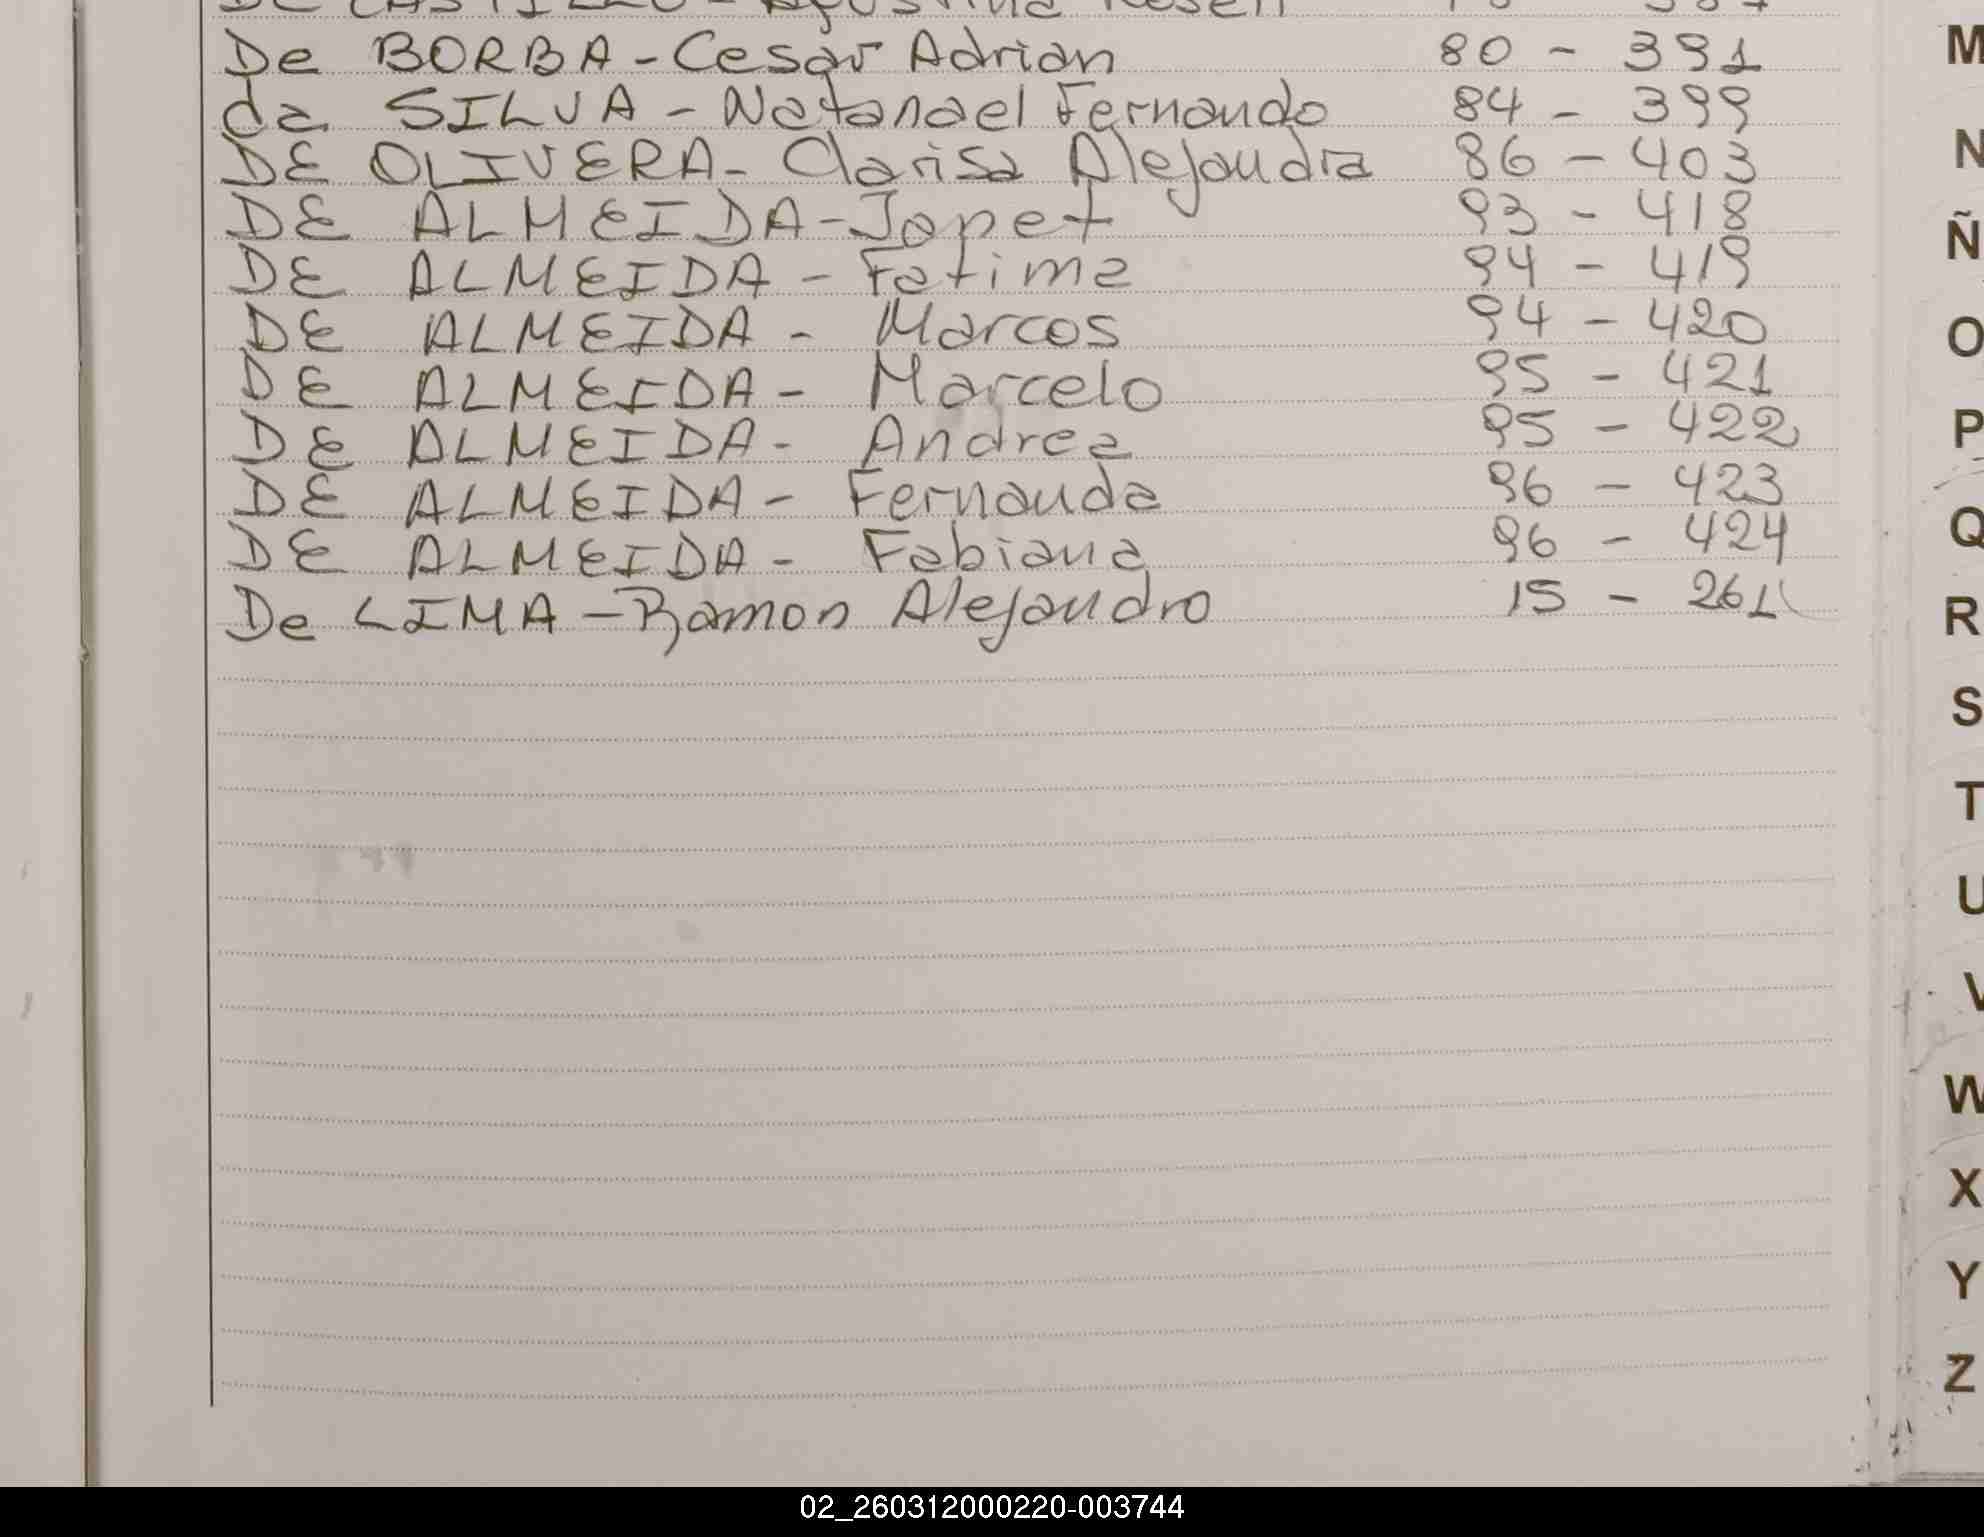 De BORBA - Cesar Adrian 80 - 391
da SILVA - Natanael Fernando 84 - 399
DE OLIVERA - Clarisa Alejandra 86 - 403
DE ALMEIDA - Janet 93 - 418
DE ALMEIDA - Fatima 94 - 419
DE ALMEIDA - Marcos 94 - 420
DE ALMEIDA - Marcelo 95 - 421
DE ALMEIDA - Andrea 95 - 422
DE ALMEIDA - Fernanda 96 - 423
DE ALMEIDA - Fabiana 96 - 424
De LIMA - Ramon Alejandro 15 - 261
M
N
Ñ
O
P
Q
R
S
T
U
V
W
X
Y
Z
02_260312000220-003744